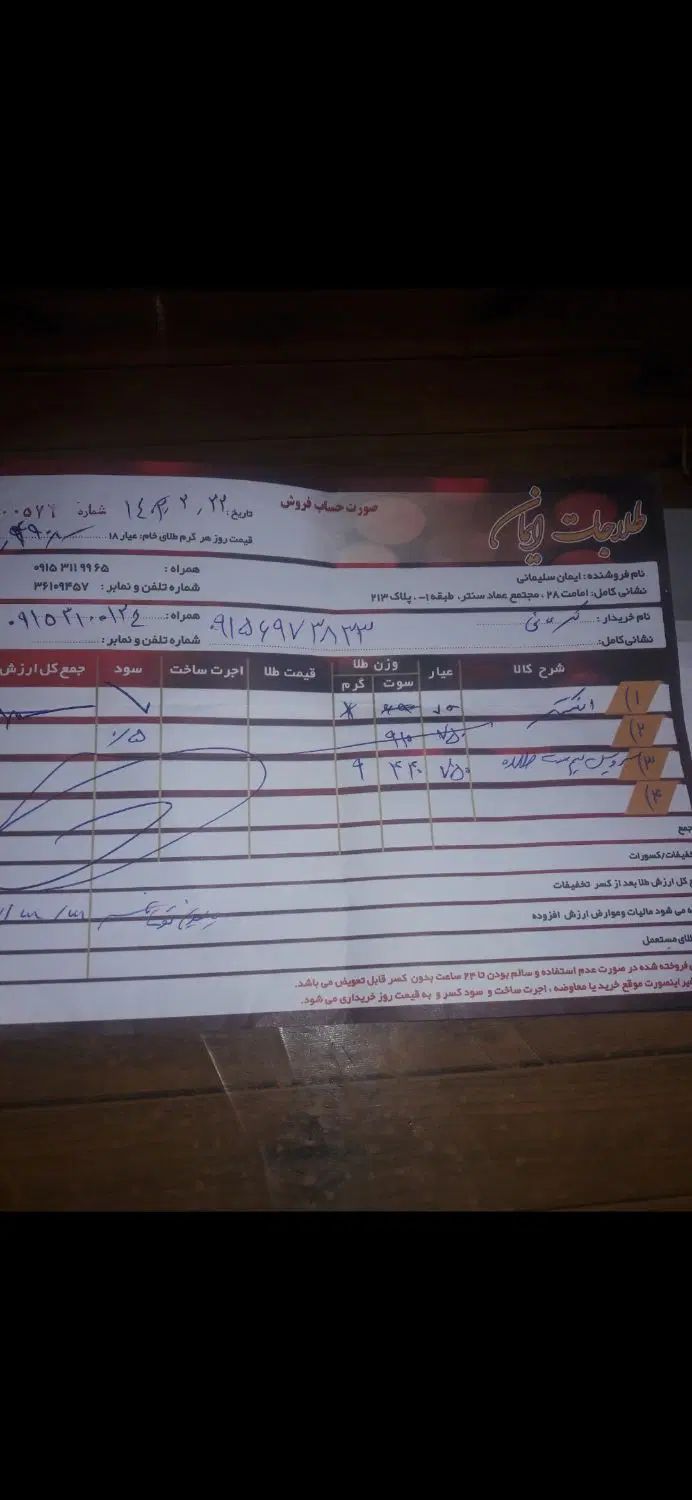 طلاجات ایمان
صورتحساب فروش
تاریخ: ۲,۲۲ شماره ۰۰۵۷۲
قیمت روز هر گرم طلای خام: عیار ۱۸
نام فروشنده: ایمان سلیمانی همراه: ۰۹۱۵ ۳۱۱ ۹۹ ۶۵
نشانی کامل: امامت ۲۸ ، مجتمع عماد سنتر، طبقه ۱-، پلاک ۲۱۳ شماره تلفن و نمابر: ۳۶۱۰۹۴۵۷
نام خریدار: ۰۹۱۵۶۹۷۳۸۳۳ همراه:
نشانی کامل: شماره تلفن و نمابر:
شرح کالا عیار وزن طلا سوت گرم قیمت طلا اجرت ساخت سود جمع کل ارزش
۱) انگشتر
۲) ۷۵۰ ۹۱۰ ٪۵
۳) سرویس نیم ست ۷۵۰ ۴۴۰ ۹
۴)
جمع
تخفیفات/کسورات
کل ارزش طلا بعد از کسر تخفیفات
می شود مالیات وعوارض ارزش افزوده
طلای مستعمل
فروخته شده در صورت عدم استفاده و سالم بودن تا ۲۴ ساعت بدون کسر قابل تعویض می باشد.
غیر اینصورت موقع خرید یا معاوضه ، اجرت ساخت و سود کسر و به قیمت روز خریداری می شود.